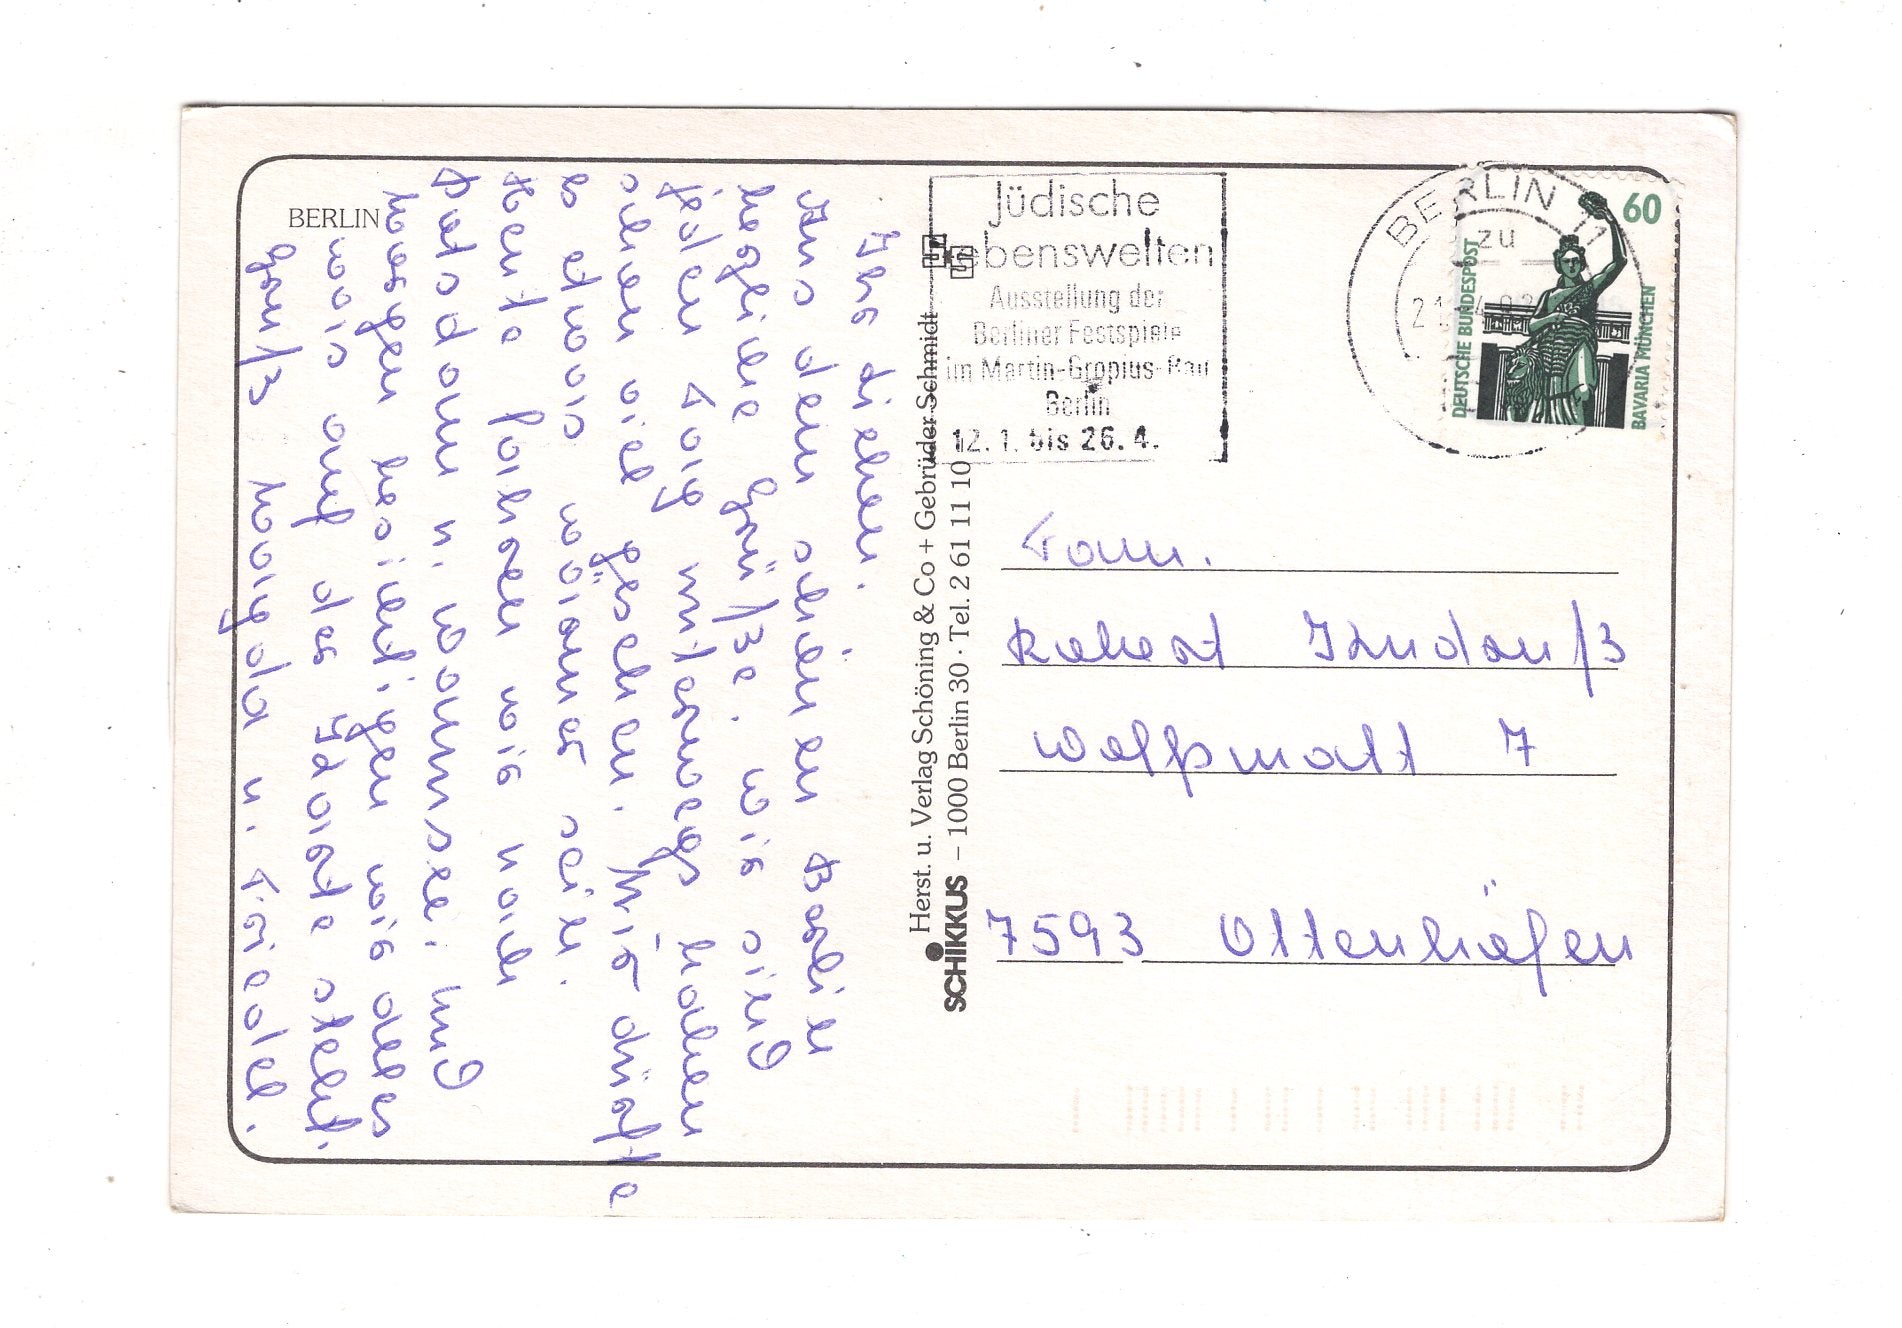 BERLIN
Ihr Lieben.
Aus dem schönen Berlin
herzliche Grüße. Wir sind
jeden Tag unterwegs haben
schon viel gesehen. Nur dürfte
es etwas wärmer sein.
Heute fahren wir nach
Potsdam u. Wannsee. und
morgen besichtigen wir alles
was auf der Karte steht.
Gruß Magda u. Friedel.
Herst. u. Verlag Schöning & Co + Gebrüder Schmidt
SCHIKKUS – 1000 Berlin 30 · Tel. 2 61 11 10
Jüdische
Lebenswelten
Ausstellung der
Berliner Festspiele
im Martin-Gropius-Bau
Berlin
12.1. bis 26.4.
BERLIN 11
zu
60
DEUTSCHE BUNDESPOST
BAVARIA MÜNCHEN
Fam.
Robert
Wolfsmatt 7
7593 Ottenhöfen